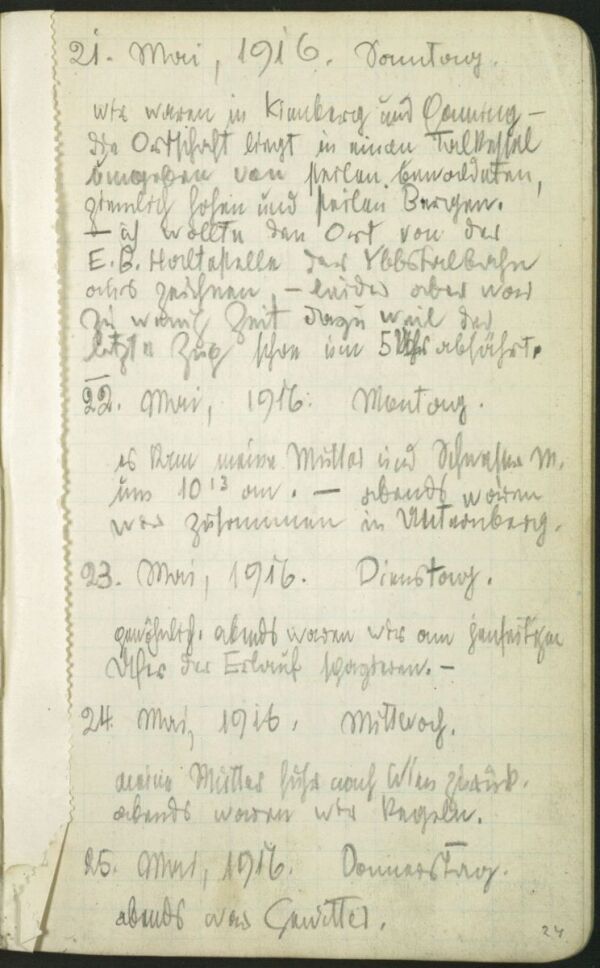 21. Mai, 1916. Sonntag.
wir waren in Kienberg und Gaming –
die Ortschaft liegt in einen Talkessel
umgeben von steilen bewaldeten,
ziemlich hohen und steilen Bergen.
– ich wollte den Ort von der
E.B. Haltestelle der Ybbstalbahn
aus zeichnen, – leider aber war
zu wenig Zeit dazu weil der
letzte Zug schon um 5 Uhr abfährt.
22. Mai, 1916. Montag.
es kam meine Mutter und Schwester M.
um 10 13 an. – abends waren
wir zusammen in Unternberg.
23. Mai, 1916. Dienstag.
gewöhnlich. abends waren wir am jenseitigen
Ufer der Erlauf spazieren. –
24. Mai, 1916. Mittwoch.
meine Mutter fuhr nach Wien zurück.
abends waren wir Kegeln.
25. Mai, 1916. Donnerstag.
abends war Gewitter.
24